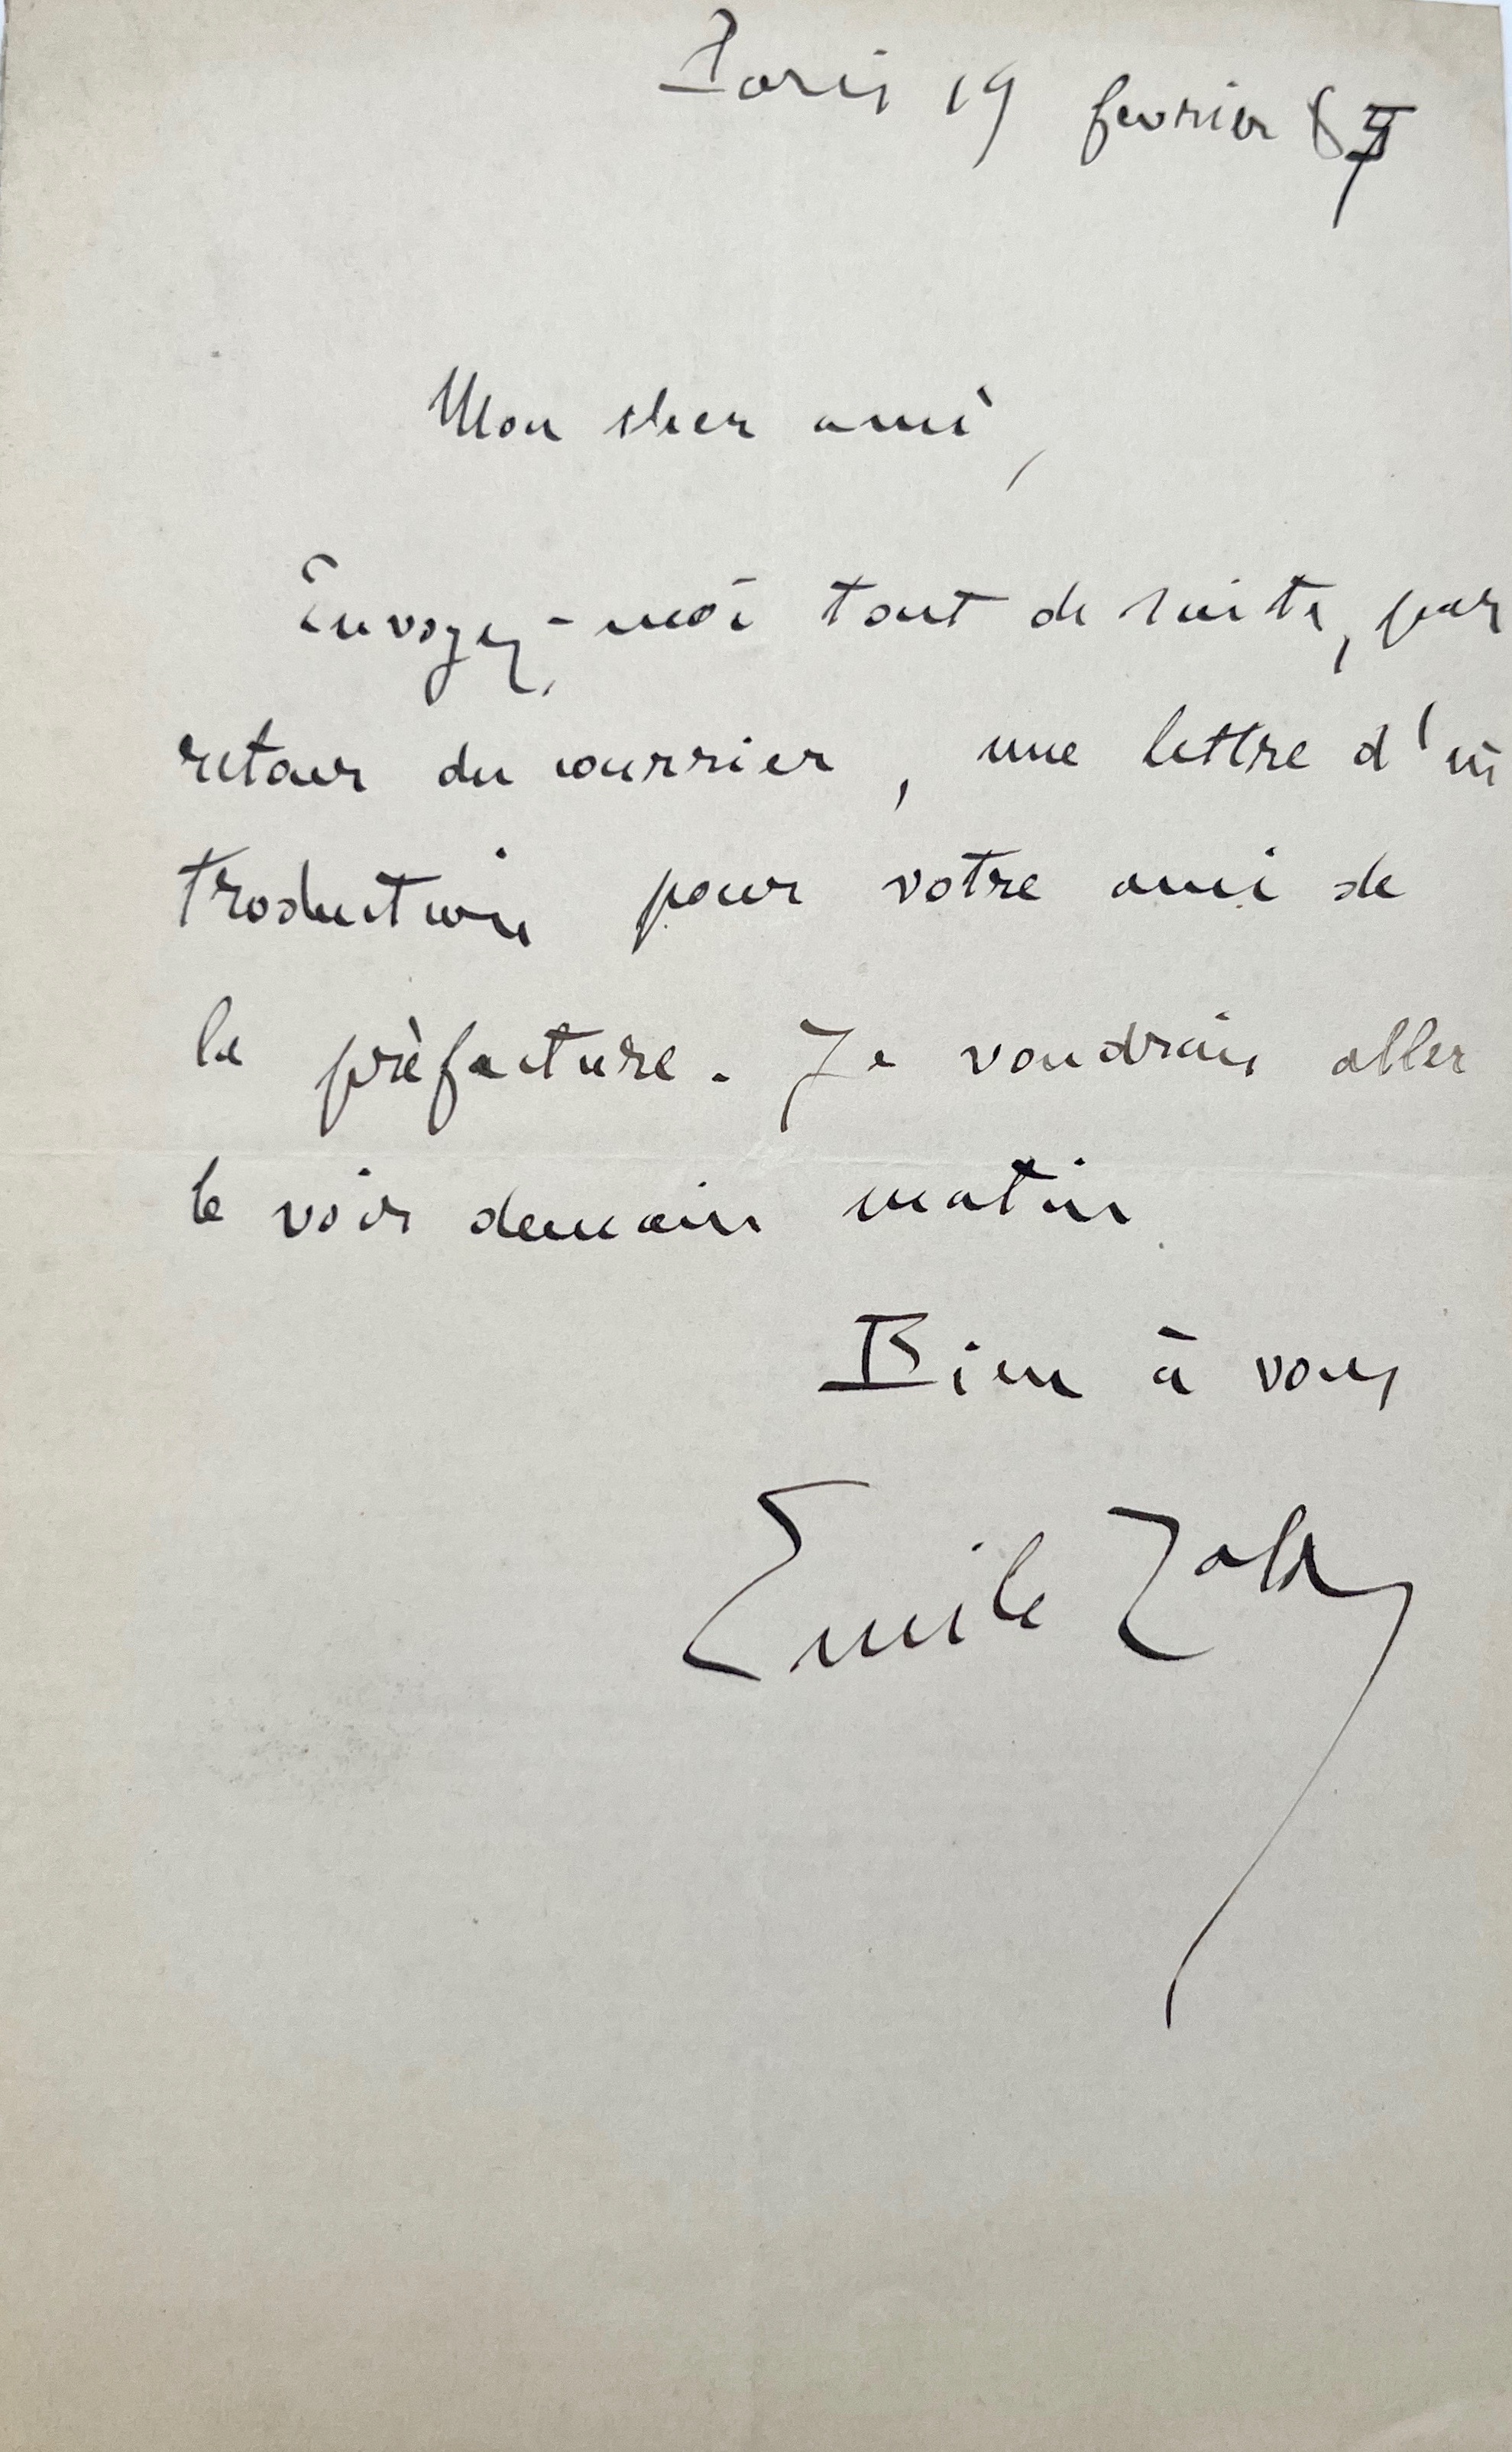 Paris 19 fevrier 87
Mon cher ami,
Envoyez-moi tout de suite, par
retour du courrier, une lettre d'in
troduction pour votre ami de
la préfecture. Je voudrais aller
le voir demain matin.
Bien à vous
Emile Zola